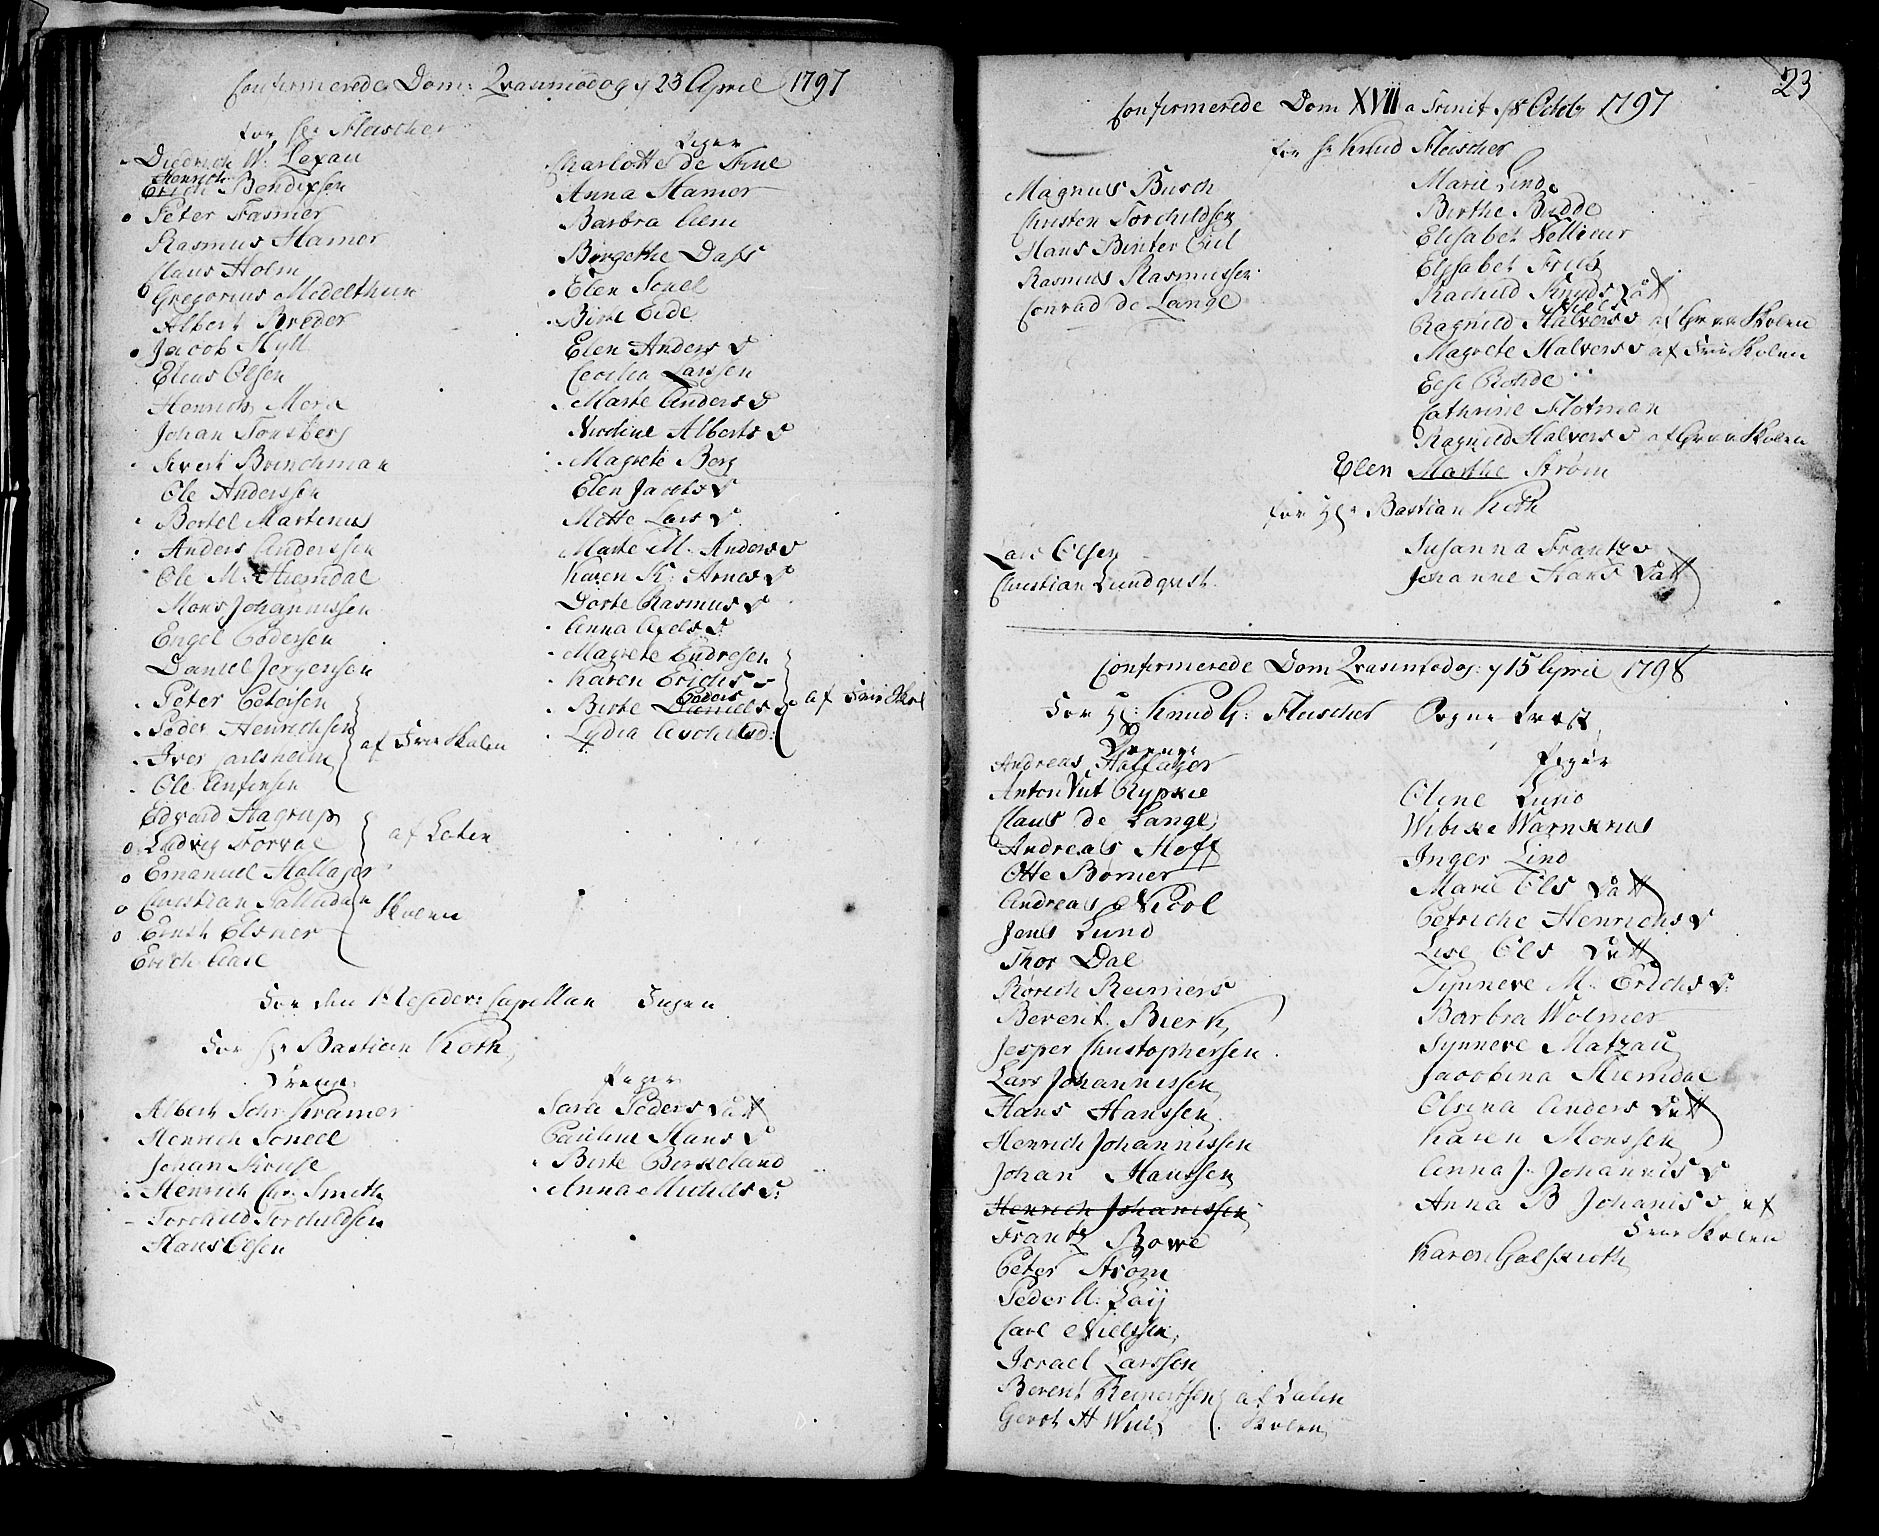 Confirmerede Dom: Qvasimodog: 23 April 1797
for Hr Fleischer
Diedrich W. Lexau
Henrich
Erich Bendixsen
Peter Fasmer
Rasmus Hamer
Claus Holm
Gregorius Midelthun
Albert Breder
Jacob Hyll
Elias Olsen
Henrich Mora
Johan Tonsberg
Sivert Brinchman
Ole Anderssen
Bertel Martinus
Anders Anderssen
Ole M. Hiemdal
Mons Johannissen
Engel Pedersen
Daniel Jørgensen
Peter Petersen
Peder Henrichsen
Iver Carlsheim
af Frie Skolen
Ole Anfinsen
Edvard Hagrup
Ludvig Forval
af Latin
Emanuel Hallager
Christian Palludan
Skolen
Ernst Elsner
Erich Aase
Piger
Charlotte de Fine
Anna Hamer
Barbra Clem
Birgethe Dass
Elen Sonel
Birte Eide
Elen Anders D
Cecilia Larssen
Marte Anders D
Nicoline Alberts D
Magrete Berg
Elen Jacobs D
Mette Lars D
Marte M. Anders D
Karen K: Arnes D
Dorte Rasmus D
Anna Axels D:
Magrete Endresen
Karen Erichs D
Peders
Birte Daniels D: af Frie Skol
Lydia Aschilsd:
For den Resider: Capellan Ingen
For Hr Bastian Roth
Drenge
Albert Schr: Kramer
Henrich Sonell
Johan Kruse
Henrich Chr: Smith
Torchild Torchildsen
Hans Olsen
Piger
Sara Peders Datt
Pauline Hans D
Birte Birkeland
Anna Michels D:
23
Confirmerede Dom XVII a Trinit 8 Octob 1797
for Hr Knud Fleischer
Magnus Busch
Christen Torchildsen
Hans Binter Eiel
Rasmus Rasmussen
Conrad de Lange
Marie Lind
Birthe Budde
Elisabet Vellieur
Elisabet Friis
Rachild Knuds Datt
Niels
Ragnild Halvers D af Frie Skolen
Magrete Halvers D af Frie Skolen
Else Rohde
Cathrine Flotman
Ragnild Halvers D af Frie Skolen
Elen Marthe Strøm
for Hr Bastian Roth
Lars Olsen
Christian Lundqvist
Susanna Frantz D
Johanne Hans Datt
Confirmerede Dom Qvasimodog: 15 April 1798
For Hr: Knud G: Fleischer Sogne Præst
Drenge
Andreas Hallager
Anton Vut Rypkie
Claus de Lange
Andreas Hoff
Otte Børner
Andreas Nicol
Jens Lund
Thor Dal
Rørich Reimers
Berent Bierk
Jesper Christophersen
Lars Johannissen
Hans Hanssen
Henrich Johannissen
Johan Hanssen
Henrich Johanissen
Frantz Bowe
Peter Strøm
Peder A: Faij
Carl Nielssen
Israel Larssen
Berent Reinertsen af Latin
Gerth H Wiel Skolen
Piger
Oline Lund
Wibeke Warnkrius
Inger Lind
Marie Ols Datt
Petriche Henrichs D
Lise Ols Datt
Synneve M. Erichs D:
Barbra Wolmer
Synneve Matzau
Jacobina Hiemdal
Olsina Anders Datt
Karen Monssen
Anna J. Johannis D
Anna B Johanis D af
Frie Skolen
Karen Galskiøth